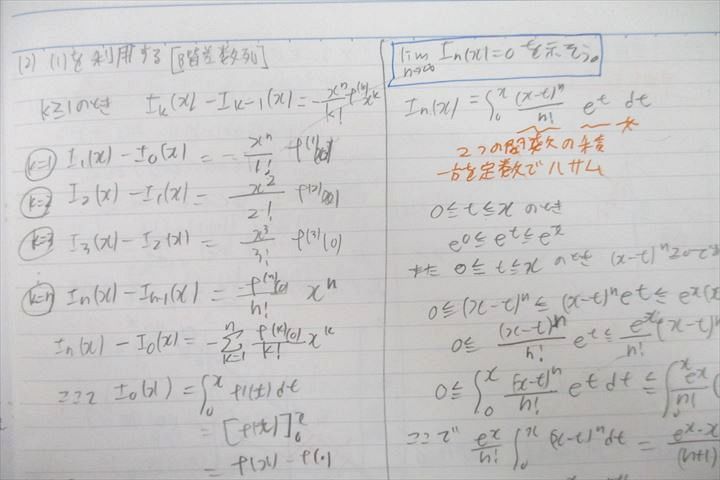 (2) (1)を利用する [階差数列]
k≧1のとき I_k(x) - I_{k-1}(x) = -\frac{x^n}{k!} f^{(k)} x^k
k=1 I_1(x) - I_0(x) = -\frac{x^n}{1!} f^{(1)}(0)
k=2 I_2(x) - I_1(x) = \frac{x^2}{2!} f^{(2)}(0)
k=3 I_3(x) - I_2(x) = \frac{x^3}{3!} f^{(3)}(0)
k=n I_n(x) - I_{n-1}(x) = \frac{-f^{(n)}(0)}{n!} x^n
I_n(x) - I_0(x) = -\sum_{k=1}^{n} \frac{f^{(k)}(0)}{k!} x^k
ここで I_0(x) = \int_0^x f'(t) dt
= [f(t)]_0^x
= f(x) - f(0)
\lim_{n→∞} I_n(x) = 0 を示そう。
I_n(x) = \int_0^x \frac{(x-t)^n}{n!} e^t dt
2つの関数の積
一方を定数でハサム
0≦t≦x のとき
e^0≦e^t≦e^x
また 0≦t≦x のとき (x-t)^n≧0で
0≦(x-t)^n≦(x-t)^n e^t≦e^x(x
0≦\frac{(x-t)^n}{n!} e^t≦\frac{e^x}{n!}(x-t)^n
0≦\int_0^x \frac{(x-t)^n}{n!} e^t dt≦\int_0^x \frac{e^x}{n!}(
ここで \frac{e^x}{n!} \int_0^x (x-t)^n dt = \frac{e^x・x}{(n+1)